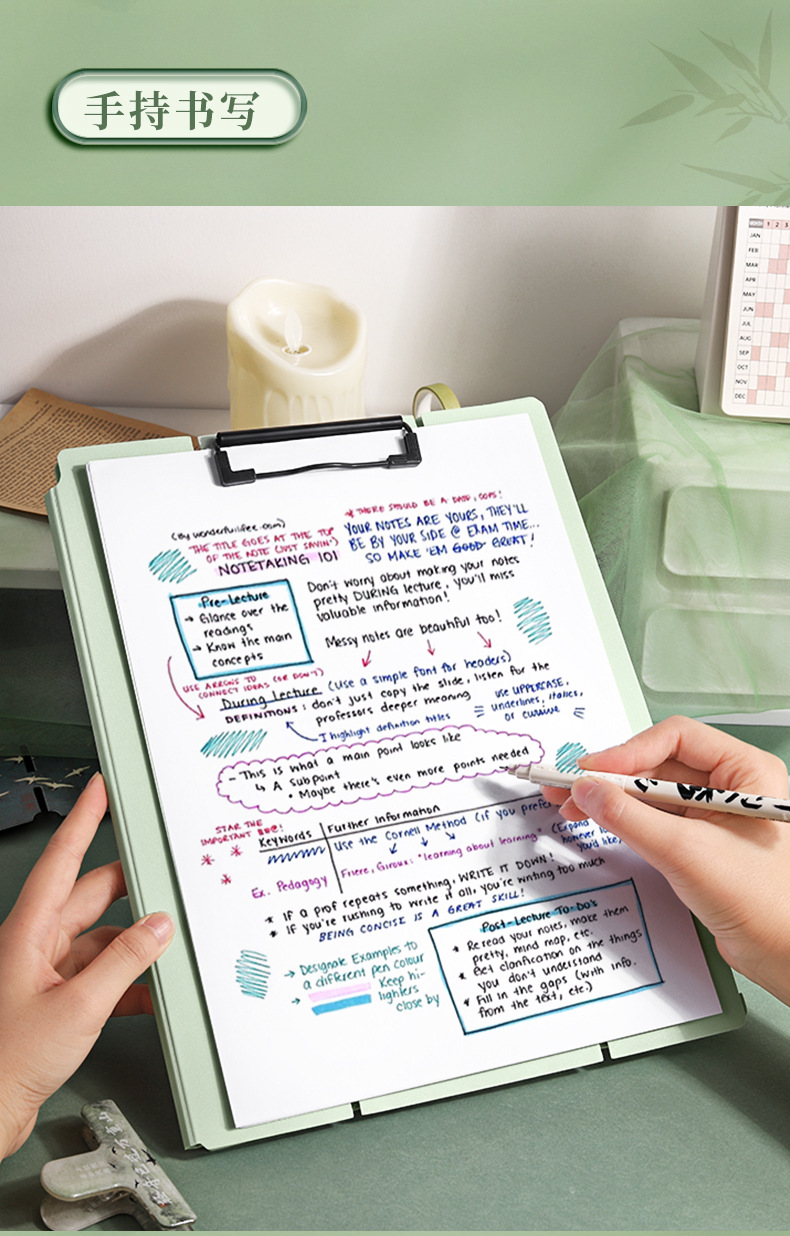 手持书写
JAN
FEB
MAR
APR
MAY
JUN
JUL
AUG
SEP
OCT
NOV
DEC
* THERE SHOULD BE A DATE, OOPS!
(By wonderfullifee.com)
THE TITLE GOES AT THE TOP
OF THE NOTE (JUST SAVIN')
NOTETAKING 101
YOUR NOTES ARE YOURS, THEY'LL
BE BY YOUR SIDE @ EXAM TIME...
SO MAKE 'EM GOOD GREAT!
Pre-Lecture
→ Glance over the
readings
→ Know the main
concepts
Don't worry about making your notes
pretty DURING lecture, you'll miss
valuable information!
Messy notes are beautiful too!
USE ARROWS TO
CONNECT IDEAS (OR DON'T)
During Lecture (Use a simple font for headers)
DEFINITIONS: don't just copy the slide, listen for the
professors deeper meaning
I highlight definition titles
use UPPERCASE,
underlines, italics,
or cursive
- This is what a main point looks like
↳ A subpoint
• Maybe there's even more points needed
STAR THE
IMPORTANT
Keywords
Further Information
Use the Cornell Method (if you prefe
(Expand
however
you'd like)
Ex. Pedagogy
Friere, Giroux: "learning about learning"
* If a prof repeats something, WRITE IT DOWN!
* If you're rushing to write it all, you're writing too much
BEING CONCISE IS A GREAT SKILL!
→ Designate Examples to
a different pen colour
→ Keep hi-
lighters
close by
Post-Lecture To-Do's
* Reread your notes, make them
pretty, mind map, etc.
* Get clarification on the things
you don't understand
* Fill in the gaps (with info.
from the text, etc)